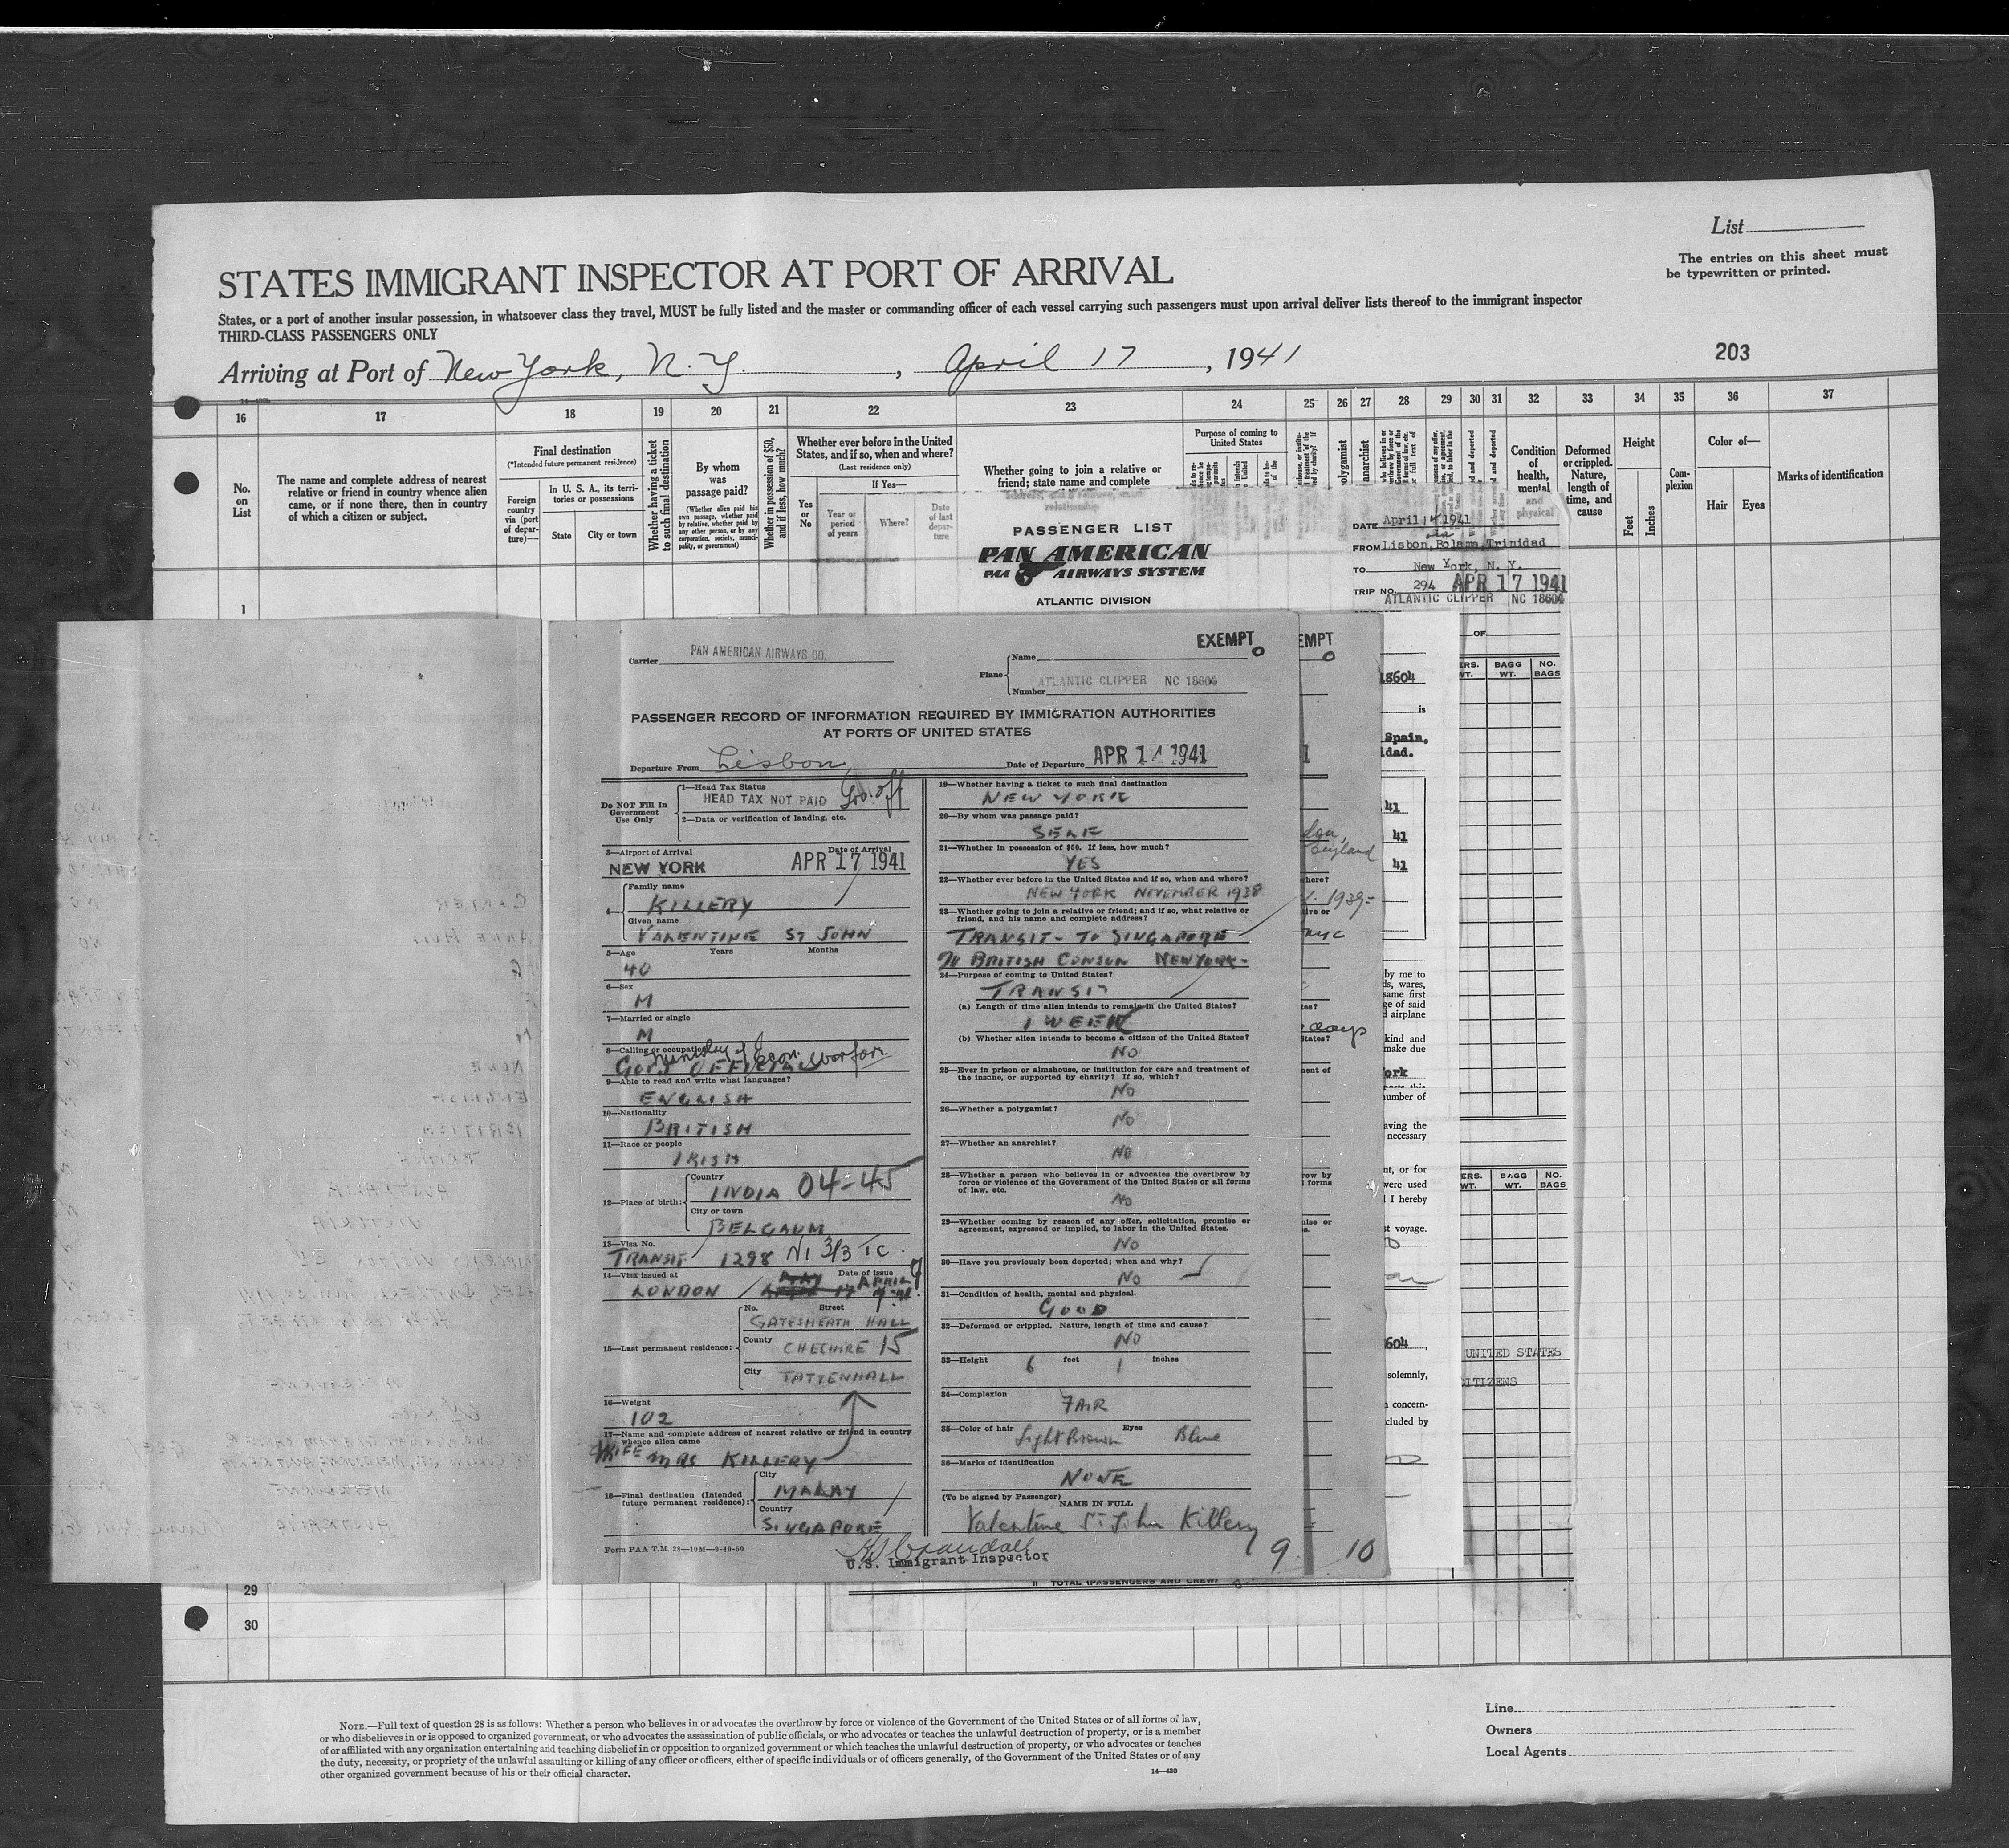 List
The entries on this sheet must
be typewritten or printed.
STATES IMMIGRANT INSPECTOR AT PORT OF ARRIVAL
States, or a port of another insular possession, in whatsoever class they travel, MUST be fully listed and the master or commanding officer of each vessel carrying such passengers must upon arrival deliver lists thereof to the immigrant inspector
THIRD-CLASS PASSENGERS ONLY
Arriving at Port of New York, N. Y. , April 17 , 1941
203
16 17 18 19 20 21 22 23 24 25 26 27 28 29 30 31 32 33 34 35 36 37
No. on List
The name and complete address of nearest
relative or friend in country whence alien
came, or if none there, then in country
of which a citizen or subject.
Final destination
(*Intended future permanent residence)
Foreign country via (port of departure)—
In U. S. A., its territories or possessions
State City or town
Whether having a ticket to such final destination
By whom was passage paid?
(Whether alien paid his own passage, whether paid by relative, whether paid by any other person, or by any corporation, society, municipality, or government)
Whether in possession of $50, and if less, how much?
Whether ever before in the United
States, and if so, when and where?
(Last residence only)
Yes or No
If Yes—
Year or period of years
Where?
Date of last departure
Whether going to join a relative or
friend; state name and complete
relationship
Purpose of coming to
United States
polygamist
anarchist
Condition of health, mental and physical
Deformed or crippled. Nature, length of time, and cause
Height
Feet Inches
Complexion
Color of—
Hair Eyes
Marks of identification
PASSENGER LIST
PAN AMERICAN
PAA AIRWAYS SYSTEM
ATLANTIC DIVISION
DATE April 14 1941
FROM Lisbon, Bolama, Trinidad
TO New York, N. Y.
TRIP NO. 294 APR 17 1941
ATLANTIC CLIPPER NC 18604
1
OF
ERS. WT. BAGG WT. NO. BAGS
EXEMPT
Carrier PAN AMERICAN AIRWAYS CO.
Plane Name
ATLANTIC CLIPPER NC 18604
Number
PASSENGER RECORD OF INFORMATION REQUIRED BY IMMIGRATION AUTHORITIES
AT PORTS OF UNITED STATES
Departure From Lisbon Date of Departure APR 14 1941
Do NOT Fill In Government Use Only
1—Head Tax Status
HEAD TAX NOT PAID Gov. Off
2—Data or verification of landing, etc.
3—Airport of Arrival Date of Arrival
NEW YORK APR 17 1941
4— Family name
KILLERY
Given name
VALENTINE ST JOHN
5—Age Years Months
40
6—Sex
M
7—Married or single
M
8—Calling or occupation
Ministry of Econ. Warfare
GOVT OFFICIAL
9—Able to read and write what languages?
ENGLISH
10—Nationality
BRITISH
11—Race or people
IRISH
12—Place of birth:
Country
INDIA 04-45
City or town
BELGAUM
13—Visa No.
TRANSIT 1298 NI 3/3 TC.
14—Visa issued at Date of issue
LONDON APRIL
15—Last permanent residence:
No. Street
GATESHEATH HALL
County
CHESHIRE 15
City
TATTENHALL
16—Weight
102
17—Name and complete address of nearest relative or friend in country
whence alien came
WIFE MRS KILLERY
18—Final destination (Intended
future permanent residence):
City
MALAY
Country
SINGAPORE
Form PAA T.M. 28—10M—9-40-50
19—Whether having a ticket to such final destination
NEW YORK
20—By whom was passage paid?
SELF
21—Whether in possession of $50. If less, how much?
YES
22—Whether ever before in the United States and if so, when and where?
NEW YORK NOVEMBER 1938
23—Whether going to join a relative or friend; and if so, what relative or
friend, and his name and complete address?
TRANSIT - TO SINGAPORE
BRITISH CONSUL NEW YORK -
24—Purpose of coming to United States?
TRANSIT
(a) Length of time alien intends to remain in the United States?
1 WEEK
(b) Whether alien intends to become a citizen of the United States?
NO
25—Ever in prison or almshouse, or institution for care and treatment of
the insane, or supported by charity? If so, which?
NO
26—Whether a polygamist?
NO
27—Whether an anarchist?
NO
28—Whether a person who believes in or advocates the overthrow by
force or violence of the Government of the United States or all forms
of law, etc.
NO
29—Whether coming by reason of any offer, solicitation, promise or
agreement, expressed or implied, to labor in the United States.
NO
30—Have you previously been deported; when and why?
NO
31—Condition of health, mental and physical.
GOOD
32—Deformed or crippled. Nature, length of time and cause?
NO
33—Height 6 feet 1 inches
34—Complexion
FAIR
35—Color of hair Eyes
Light Brown Blue
36—Marks of identification
NONE
(To be signed by Passenger)
NAME IN FULL
Valentine St John Killery
Crandall
U.S. Immigrant Inspector
9
10
EMPT
England
1939-
NYC
days
18604
is
Spain,
dad.
41
41
41
by me to
ds, wares,
same first
ge of said
d airplane
kind and
make due
ork
umber of
aving the
necessary
nt, or for
were used
I hereby
st voyage.
604
solemnly,
n concern-
cluded by
ERS. WT. BAGG WT. NO. BAGS
UNITED STATES
CITIZENS
TOTAL (PASSENGERS AND CREW)
29
30
Line
Owners
Local Agents
NOTE.—Full text of question 28 is as follows: Whether a person who believes in or advocates the overthrow by force or violence of the Government of the United States or of all forms of law,
or who disbelieves in or is opposed to organized government, or who advocates the assassination of public officials, or who advocates or teaches the unlawful destruction of property, or is a member
of or affiliated with any organization entertaining and teaching disbelief in or opposition to organized government or which teaches the unlawful destruction of property, or who advocates or teaches
the duty, necessity, or propriety of the unlawful assaulting or killing of any officer or officers, either of specific individuals or of officers generally, of the Government of the United States or of any
other organized government because of his or their official character.
14—480